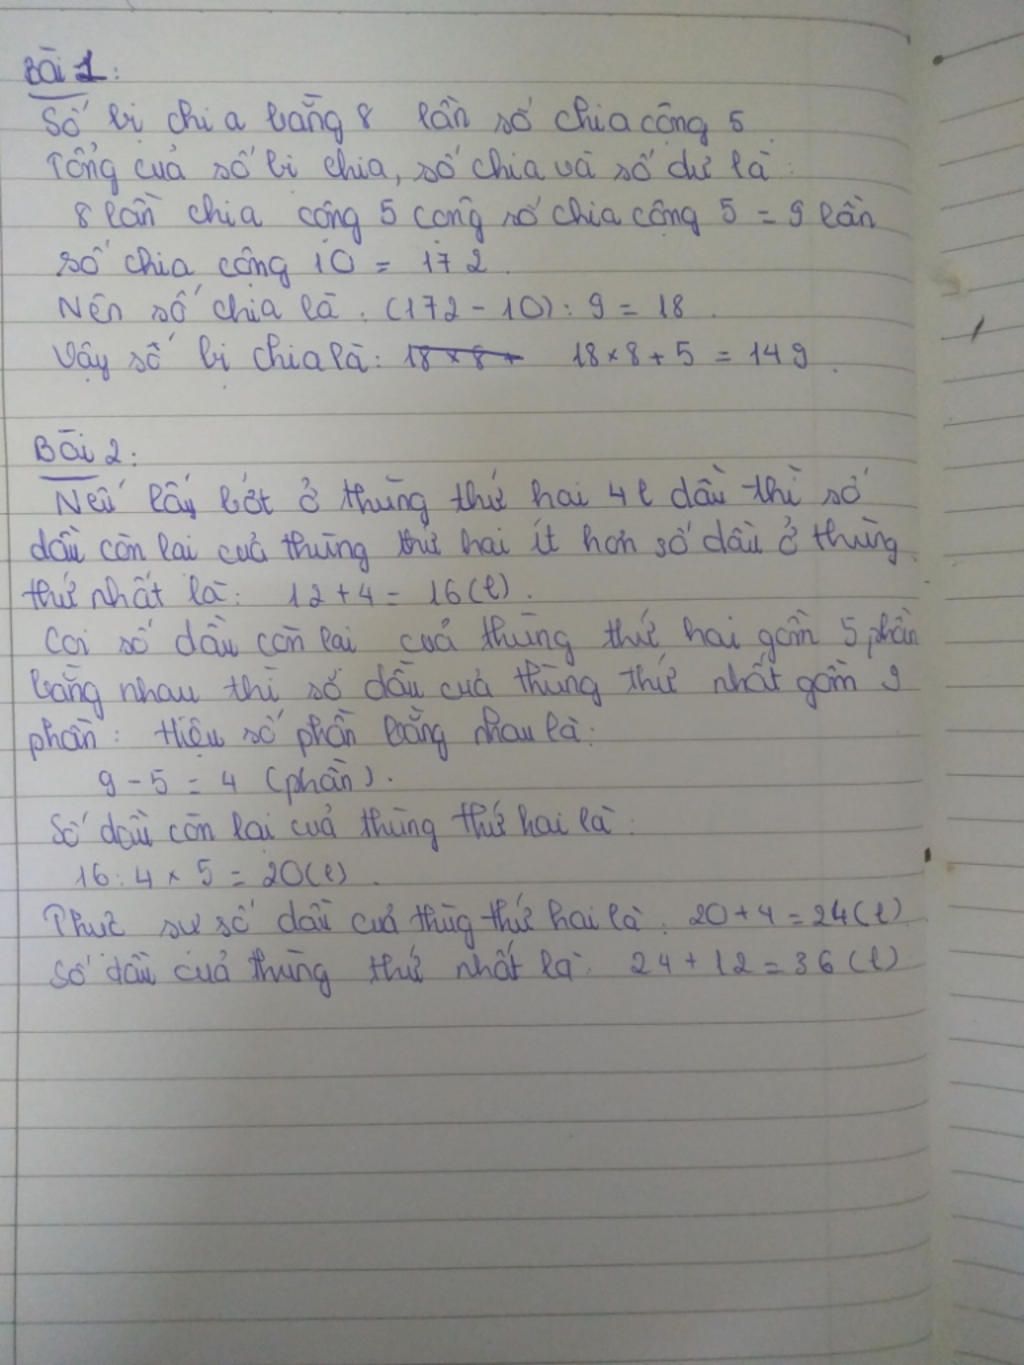 Bài 1:
Số bị chia bằng 8 lần số chia cộng 5
Tổng của số bị chia, số chia và số dư là:
8 lần chia cộng 5 cộng số chia cộng 5 = 9 lần
số chia cộng 10 = 172.
Nên số chia là: (172 - 10) : 9 = 18.
Vậy số bị chia là: 18 × 8 + 18 × 8 + 5 = 149.
Bài 2:
Nếu lấy bớt ở thùng thứ hai 4l dầu thì số
dầu còn lại của thùng thứ hai ít hơn số dầu ở thùng
thứ nhất là: 12 + 4 = 16 (l).
Coi số dầu còn lại của thùng thứ hai gồm 5 phần
bằng nhau thì số dầu của thùng thứ nhất gồm 9
phần: Hiệu số phần bằng nhau là:
9 - 5 = 4 (phần).
Số dầu còn lại của thùng thứ hai là:
16 : 4 × 5 = 20 (l).
Thực sự số dầu của thùg thứ hai là: 20 + 4 = 24 (l)
Số dầu của thùng thứ nhất là: 24 + 12 = 36 (l)